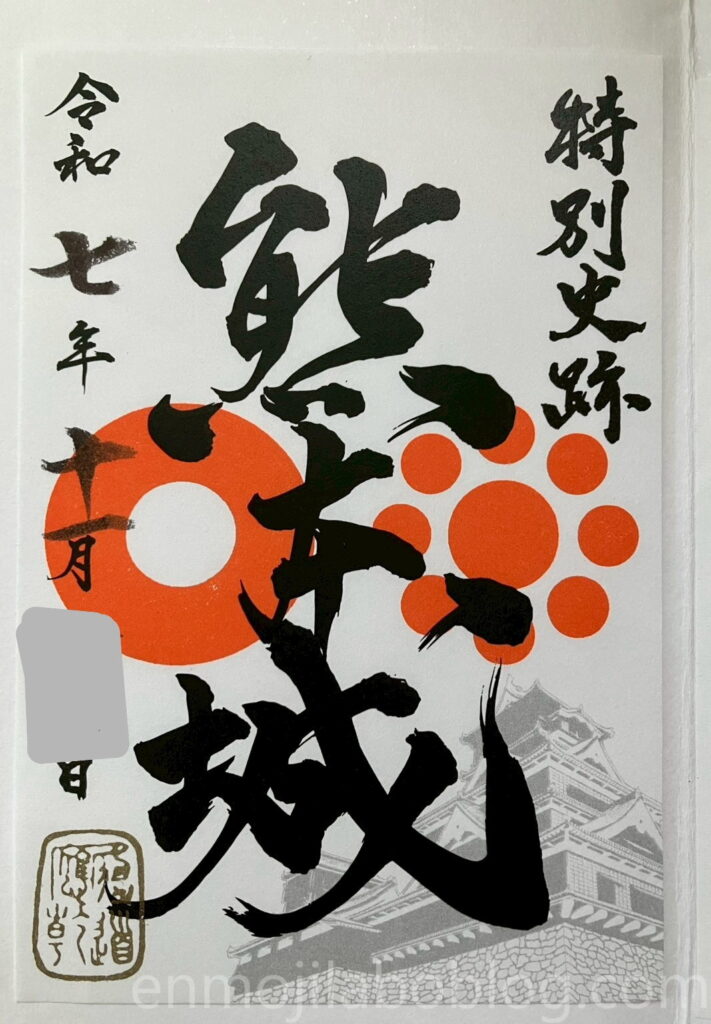 特別史跡
熊本城
令和七年十一月
日
enmojilaboblog.com